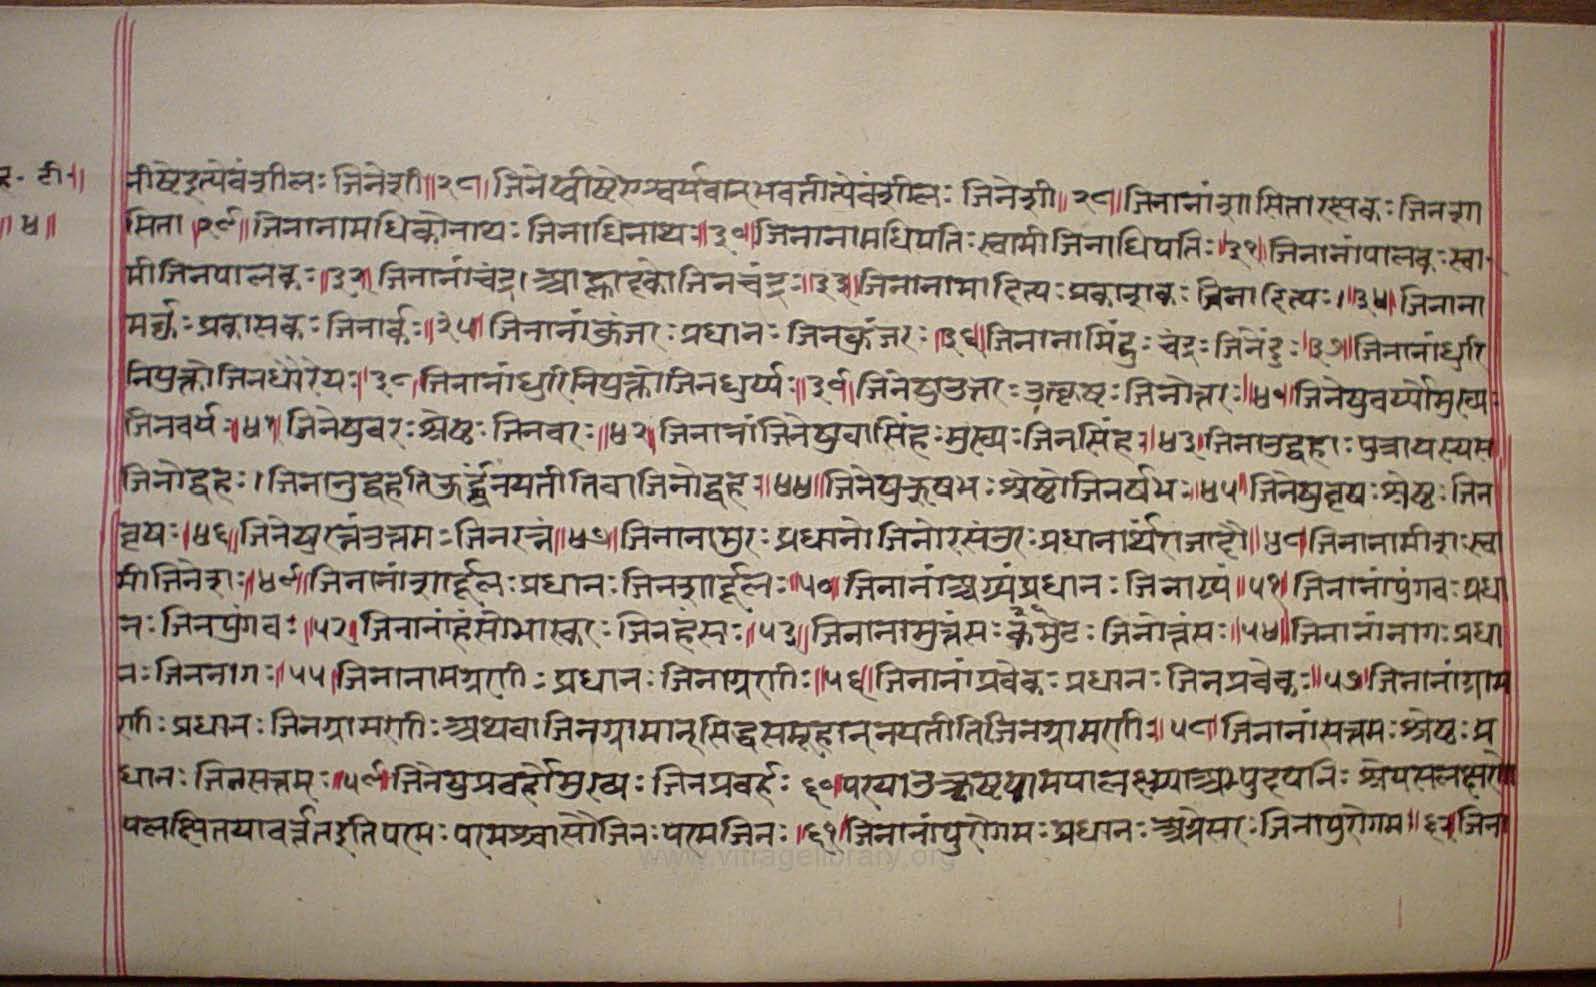 टी॰॥
॥४॥
नीष्टेइत्येवंशीलः जिनेशी॥२८॥ जिनेष्वीष्टेऐश्वर्यवान्भवतीत्येवंशीलः जिनेशी॥२८॥जिनानांशासितारक्षकः जिनशा
सिता॥२९॥जिनानामधिकोनाथः जिनाधिनाथः॥३०॥जिनानामधिपतिः स्वामीजिनाधिपतिः॥३१॥जिनानांपालकः स्वा
मीजिनपालकः॥३२॥ जिनानांचंद्र। आह्लादकोजिनचंद्रः॥३३॥जिनानामादित्यः प्रकाशकः जिनादित्यः।॥३४॥जिनाना
मर्कः प्रकासकः जिनार्कः॥३५॥ जिनानांकुंजरः प्रधानः जिनकुंजरः॥३६॥जिनानामिंदुः चंद्रः जिनेंदुः॥३७॥जिनानांधुरि
नियुक्तोजिनधौरेयः॥३८॥जिनानांधुरिनियुक्तोजिनधुर्य्यः॥३९॥ जिनेषुउत्तरः उत्कृष्टः जिनोत्तरः॥४०॥जिनेषुवर्य्योमुख्यः
जिनवर्यः॥४१॥ जिनेषुवरः श्रेष्ठः जिनवरः॥४२॥ जिनानांजिनेषुवासिंहः मुख्यः जिनसिंहः॥४३॥जिनाउद्वहाः पुत्रायस्यस
जिनोद्वहः।जिनानुद्वहतिऊर्द्ध्वंनयतीतिवाजिनोद्वहः॥४४॥जिनेषुऋषभः श्रेष्ठोजिनर्षभः॥४५॥जिनेषुवृषः श्रेष्ठः जिन
वृषः॥४६॥जिनेषुरत्नंउत्तमः जिनरत्नं॥४७॥जिनानामुरः प्रधानो जिनोरसंउरः प्रधानार्थेराजादौ॥४८॥जिनानामीशः स्वा
मीजिनेशः॥४९॥जिनानांशार्दूलः प्रधानः जिनशार्दूलः॥५०॥जिनानांअग्र्यंप्रधानः जिनाग्र्यं॥५१॥जिनानांपुंगवः प्रधा
नः जिनपुंगवः॥५२॥जिनानांहंसोभास्करः जिनहंसः॥५३॥जिनानामुत्तंसः मुकुटः जिनोत्तंसः॥५४॥जिनानांनागः प्रधा
नः जिननागः॥५५॥जिनानामग्रणीः प्रधानः जिनाग्रणीः॥५६॥जिनानांप्रवेकः प्रधानः जिनप्रवेकः॥५७॥जिनानांग्राम
णीः प्रधानः जिनग्रामणीः अथवाजिनग्रामान्सिद्धसमूहान्नयतीतिजिनग्रामणीः॥५८॥जिनानांसत्तमः श्रेष्ठः प्र
धानः जिनसत्तमः॥५९॥जिनेषुप्रवर्होमुख्यः जिनप्रवर्हः ६०॥परयाउत्कृष्टया
पलक्षितयावर्त्ततइतिपरमः परमश्चासौजिनः परमजिनः॥६१॥जिनानांपुरोगमः प्रधानः अग्रेसरः जिनापुरोगम॥६२॥जिना
www.vitragelibrary.org